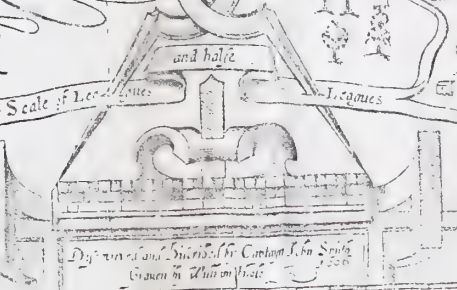 and halfe
Scale of Leagues
Leagues
Discovered and Discribed by Captayn John Smith
Graven by William Hole